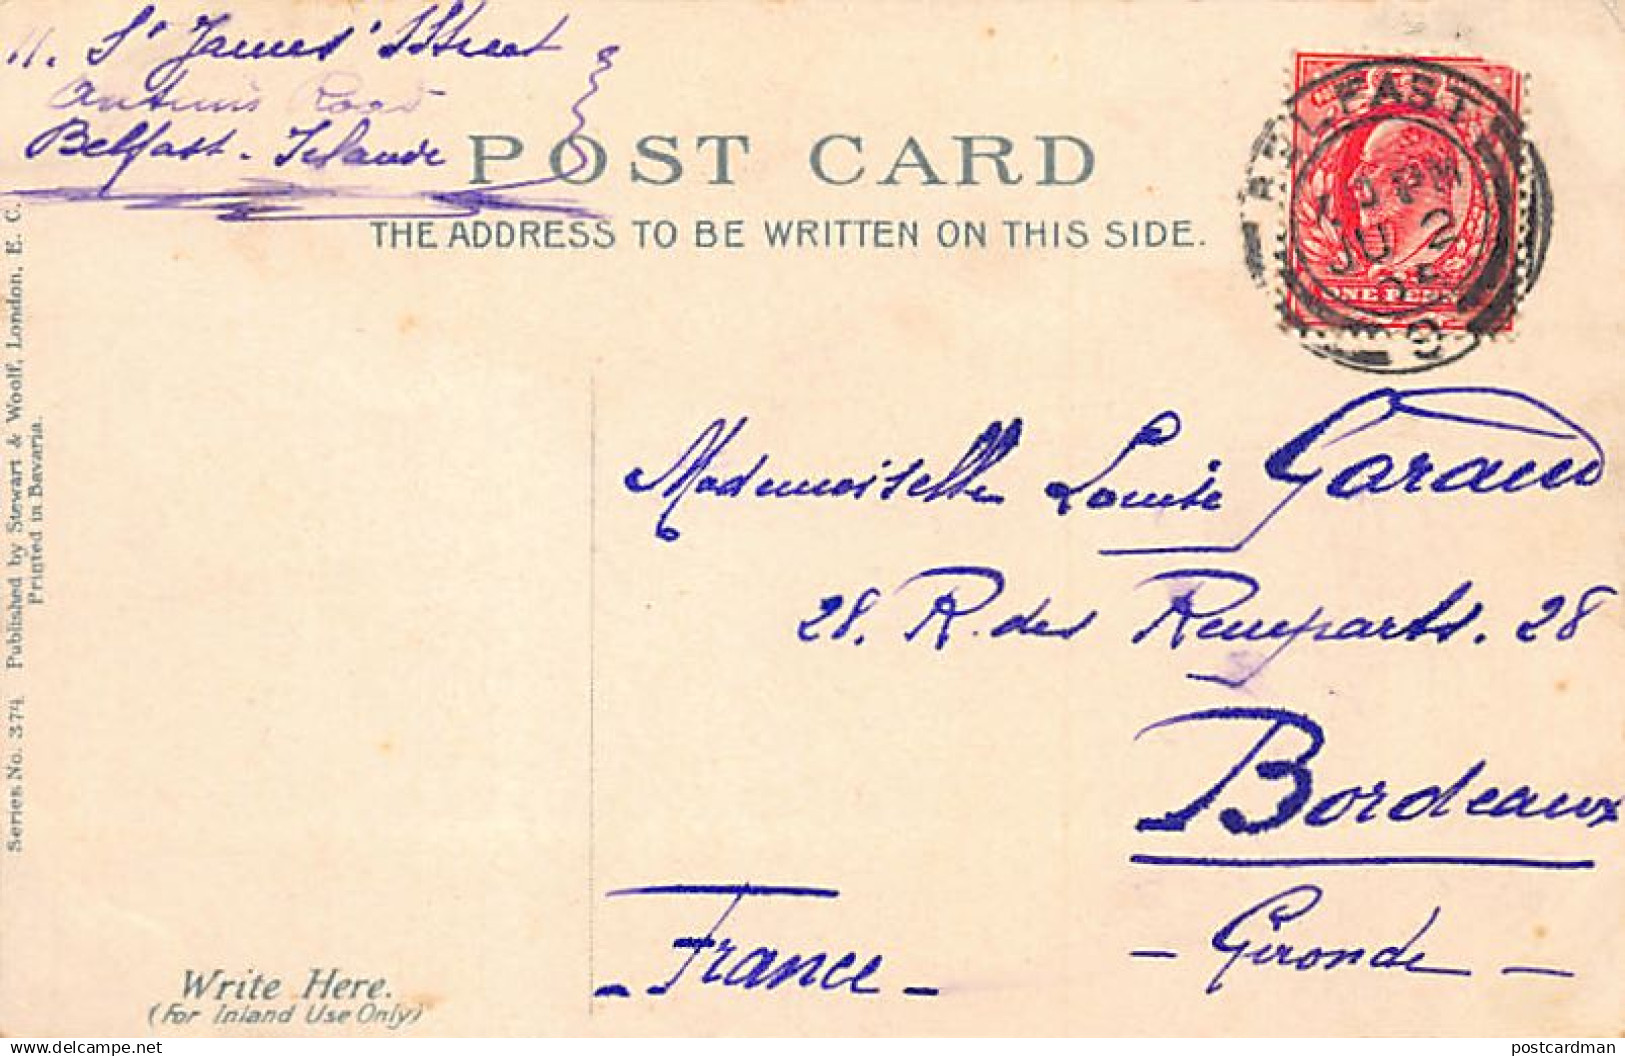 11. St James' Street
Antrim Road
Belfast - Irlande
POST CARD
THE ADDRESS TO BE WRITTEN ON THIS SIDE.
BELFAST
PM
JU 2
05
9
ONE PENNY
Series No. 374 Published by Stewart & Woolf, London, E. C.
Printed in Bavaria.
Mademoiselle Louise Garaud
28. R. des Remparts. 28
Bordeaux
- Gironde -
- France -
Write Here.
(For Inland Use Only)
delcampe.net
postcardman